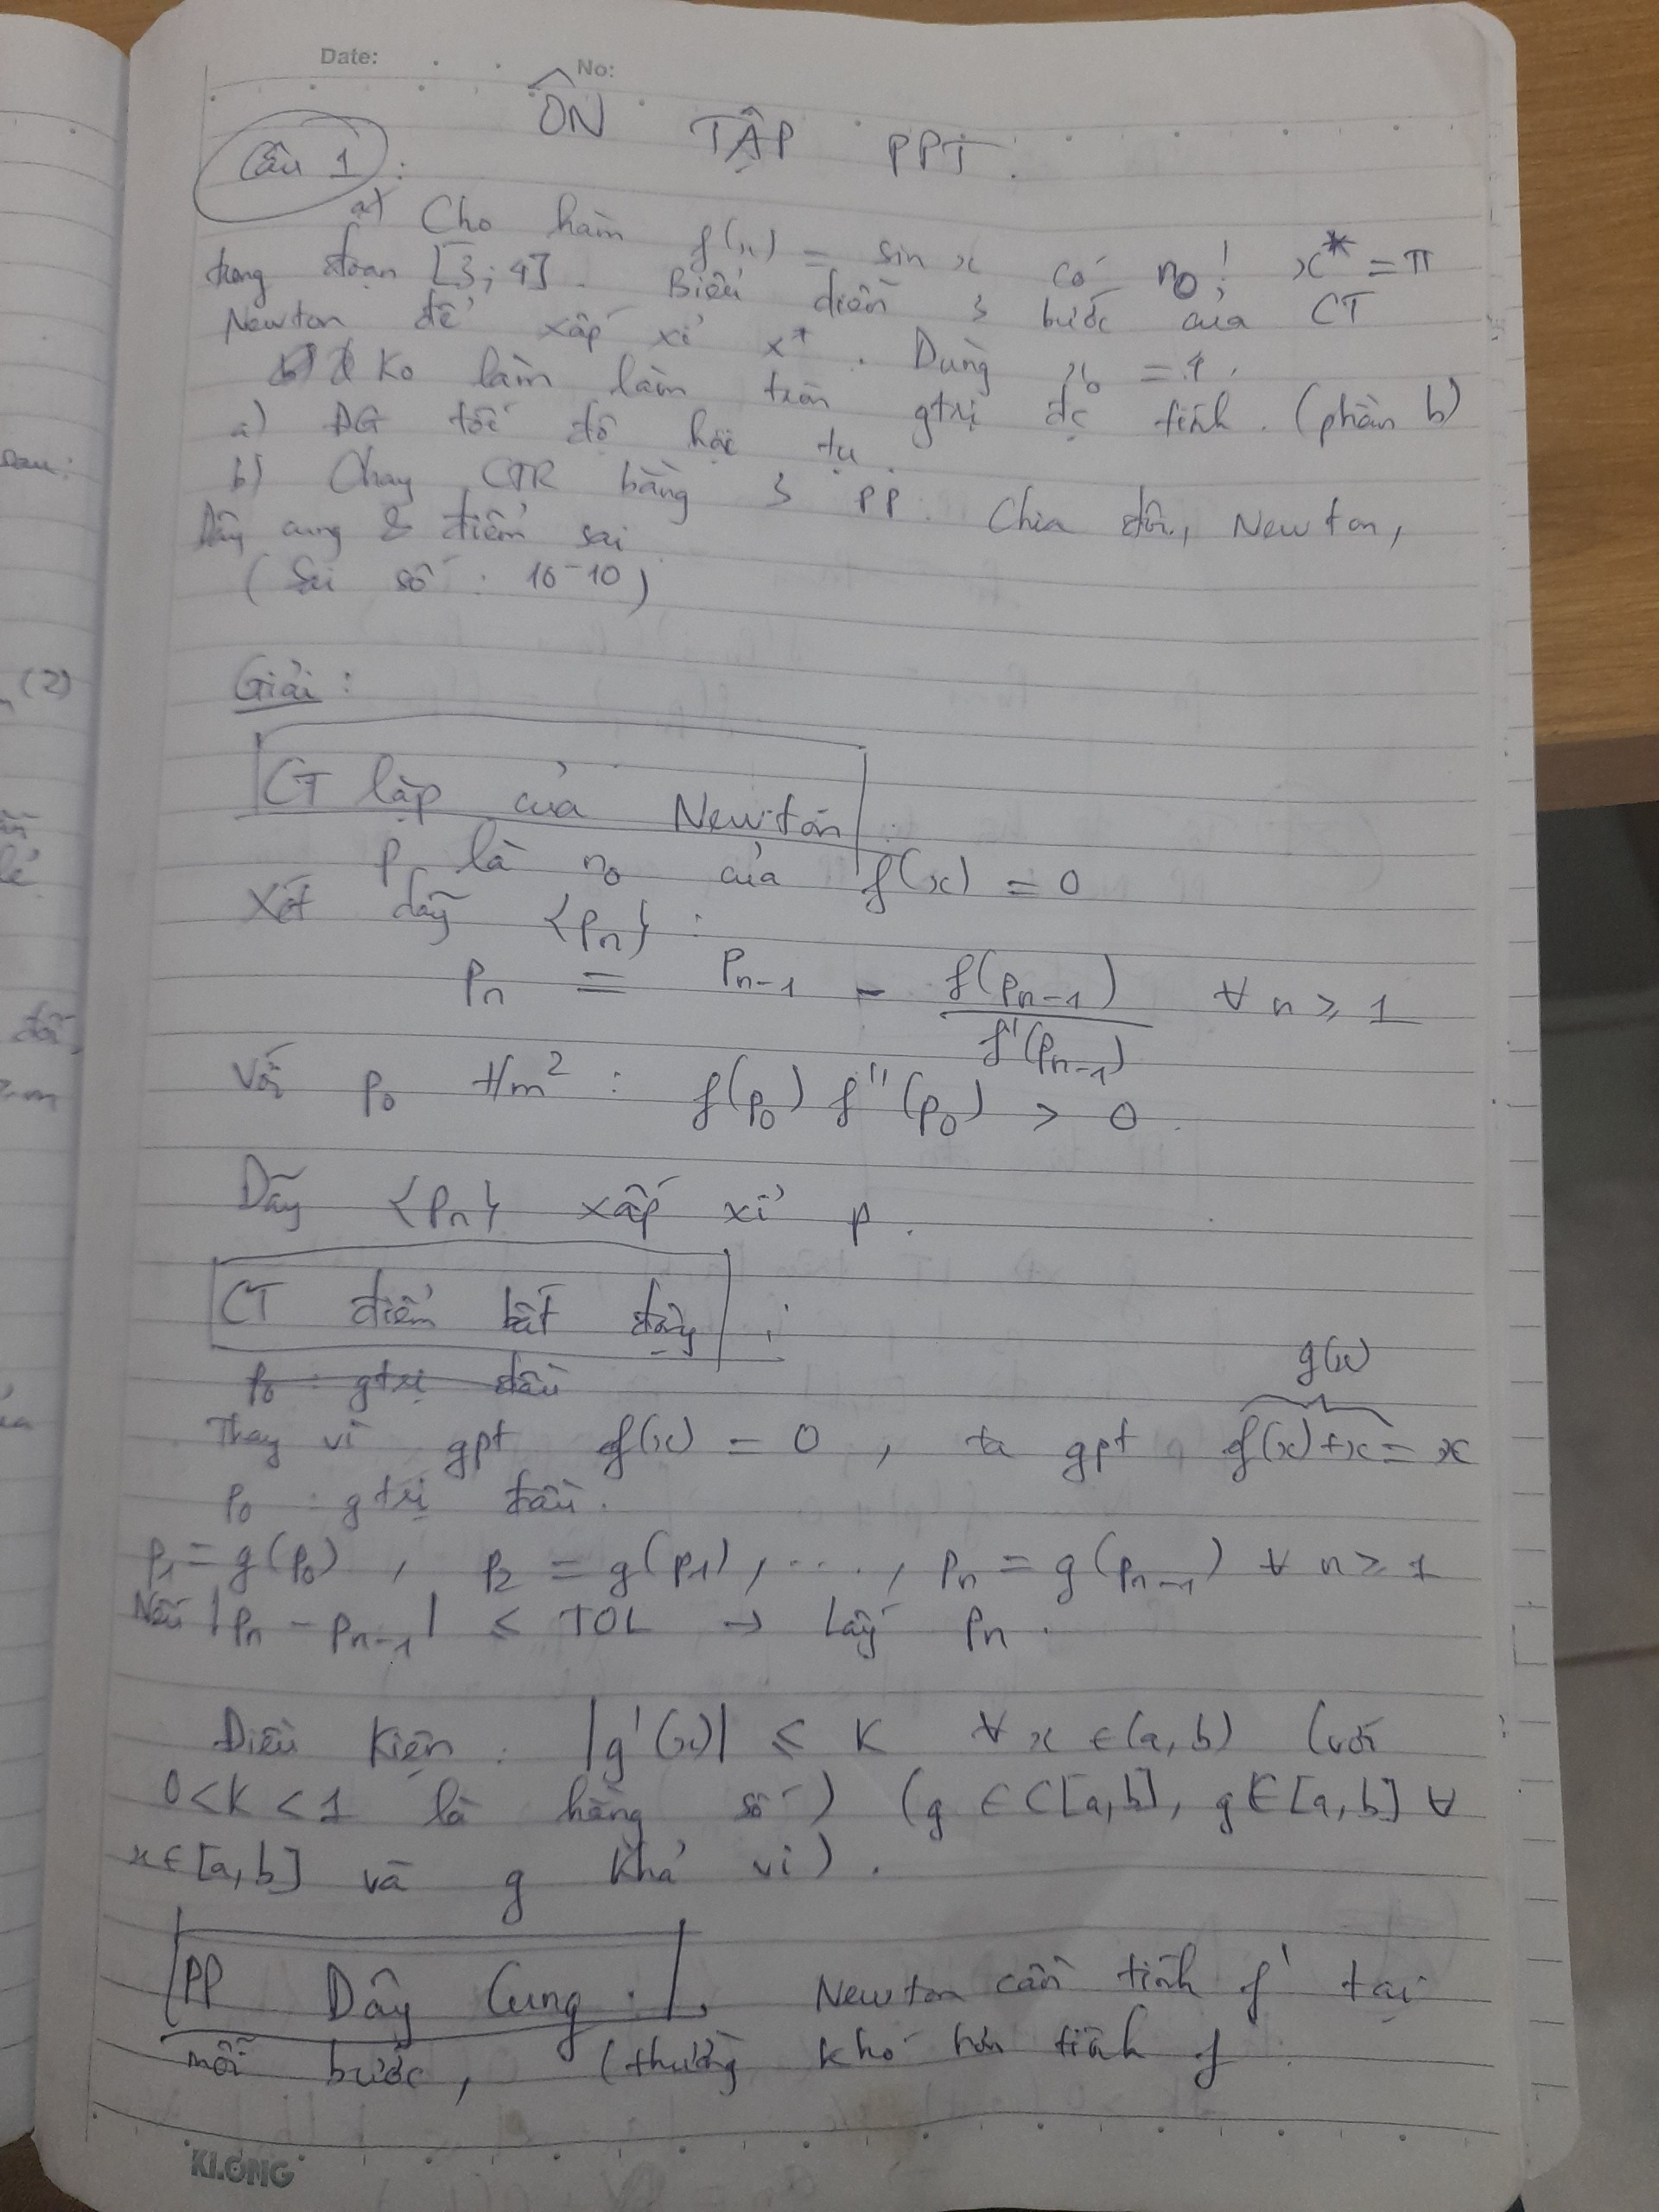 Date: No:
ÔN TẬP PPT.
Câu 1 :
a) Cho hàm f(x) = sin x có n0! x* = π
trong đoạn [3; 4]. Biểu diễn 3 bước của CT
Newton để xấp xỉ x*. Dùng x0 = 4.
Ko làm tròn gtrị đc tính. (phần b)
a) ĐG tốc độ hội tụ.
b) Chạy CTR bằng 3 PP. Chia đôi, Newton,
Dây cung & điểm sai
(Sai số : 10-10)
Giải :
CT lặp của Newton :
p là n0 của f(x) = 0
Xét dãy {pn} :
pn = pn-1 - f(pn-1) / f'(pn-1) ∀ n ≥ 1
Với p0 t/m2 : f(p0) f''(p0) > 0.
Dãy {pn} xấp xỉ p.
CT điểm bất động :
p0 : gtrị đầu
g(x)
Thay vì gpt f(x) = 0, ta gpt f(x)+x = x
p0 : gtrị đầu.
p1 = g(p0), p2 = g(p1), ...., pn = g(pn-1) ∀ n ≥ 1
Nếu |pn - pn-1| ≤ TOL → Lấy pn.
Điều kiện : |g'(x)| ≤ K ∀ x ∈ (a, b) (với
0 < K < 1 là hằng số) (g ∈ C[a, b], g ∈ [a, b] ∀
x ∈ [a, b] và g khả vi).
PP Dây Cung : Newton cần tính f' tại
mỗi bước, (thường khó hơn tính f
KLONG